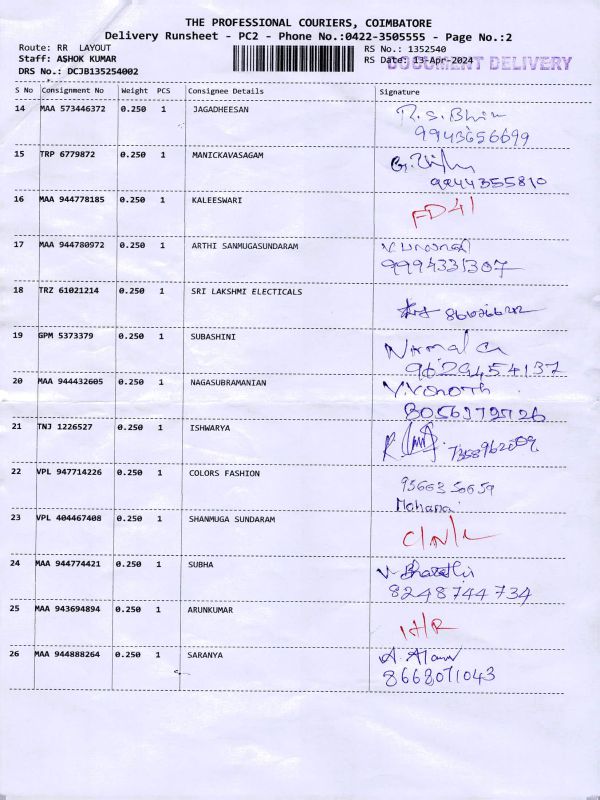 THE PROFESSIONAL COURIERS, COIMBATORE
Delivery Runsheet - PC2 - Phone No.:0422-3505555 - Page No.:2
Route: RR LAYOUT RS No.: 1352540
Staff: ASHOK KUMAR RS Date: 13-Apr-2024 DOCUMENT DELIVERY
DRS No.: DCJB135254002
S No Consignment No Weight PCS Consignee Details Signature
14 MAA 573446372 0.250 1 JAGADHEESAN R.S.Bhim
9943656699
15 TRP 6779872 0.250 1 MANICKAVASAGAM
9944355810
16 MAA 944778185 0.250 1 KALEESWARI FD41
17 MAA 944780972 0.250 1 ARTHI SANMUGASUNDARAM
9994331307
18 TRZ 61021214 0.250 1 SRI LAKSHMI ELECTICALS
19 GPM 5373379 0.250 1 SUBASHINI Nirmal
9629454137
20 MAA 944432605 0.250 1 NAGASUBRAMANIAN V.Vonoth
21 TNJ 1226527 0.250 1 ISHWARYA
22 VPL 947714226 0.250 1 COLORS FASHION 9566350659
Mohana
23 VPL 404467408 0.250 1 SHANMUGA SUNDARAM C/N/L
24 MAA 944774421 0.250 1 SUBHA V. Bharathi
8248744734
25 MAA 943694894 0.250 1 ARUNKUMAR
26 MAA 944888264 0.250 1 SARANYA A.
8668071043